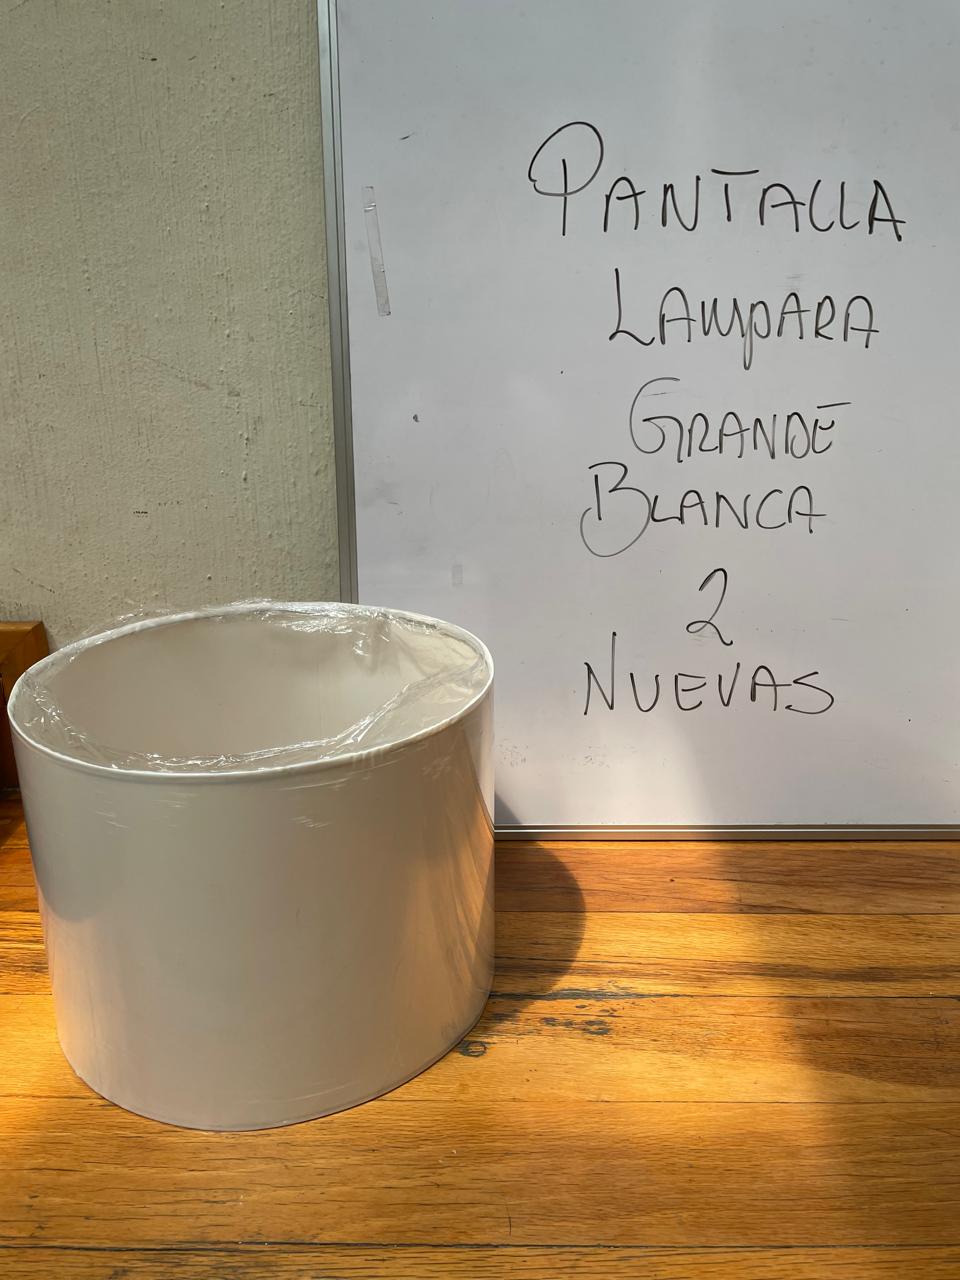 PANTALLA
LAMPARA
GRANDE
BLANCA
2
NUEVAS